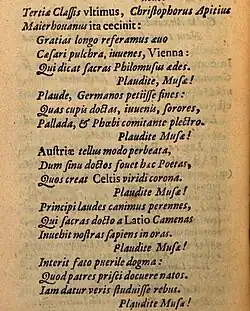 Tertia Classis vltimus, Christophorus Apitius
Maierhouanus ita cecinit:
Gratias longo referamus æuo
Cæsari pulchra, iuuenes, Vienna:
Qui dicat sacras Philomusus ædes.
Plaudite, Musæ!
Plaude, Germanos petisse fines:
Quas cupis doctas, iuuenis, sorores,
Pallada, & Phœbi comitante plectro.
Plaudite Musæ!
Austriæ tellus modo perbeata,
Dum sinu doctos fouet hæc Poetas,
Quos creat Celtis viridi corona.
Plaudite Musæ!
Principi laudes canimus perennes,
Qui sacras docto a Latio Camenas
Inuehit nostras sapiens in oras.
Plaudite Musæ!
Interit fato puerile dogma:
Quod patres prisci docuere natos.
Iam datur veris studuisse rebus.
Plaudite Musæ!